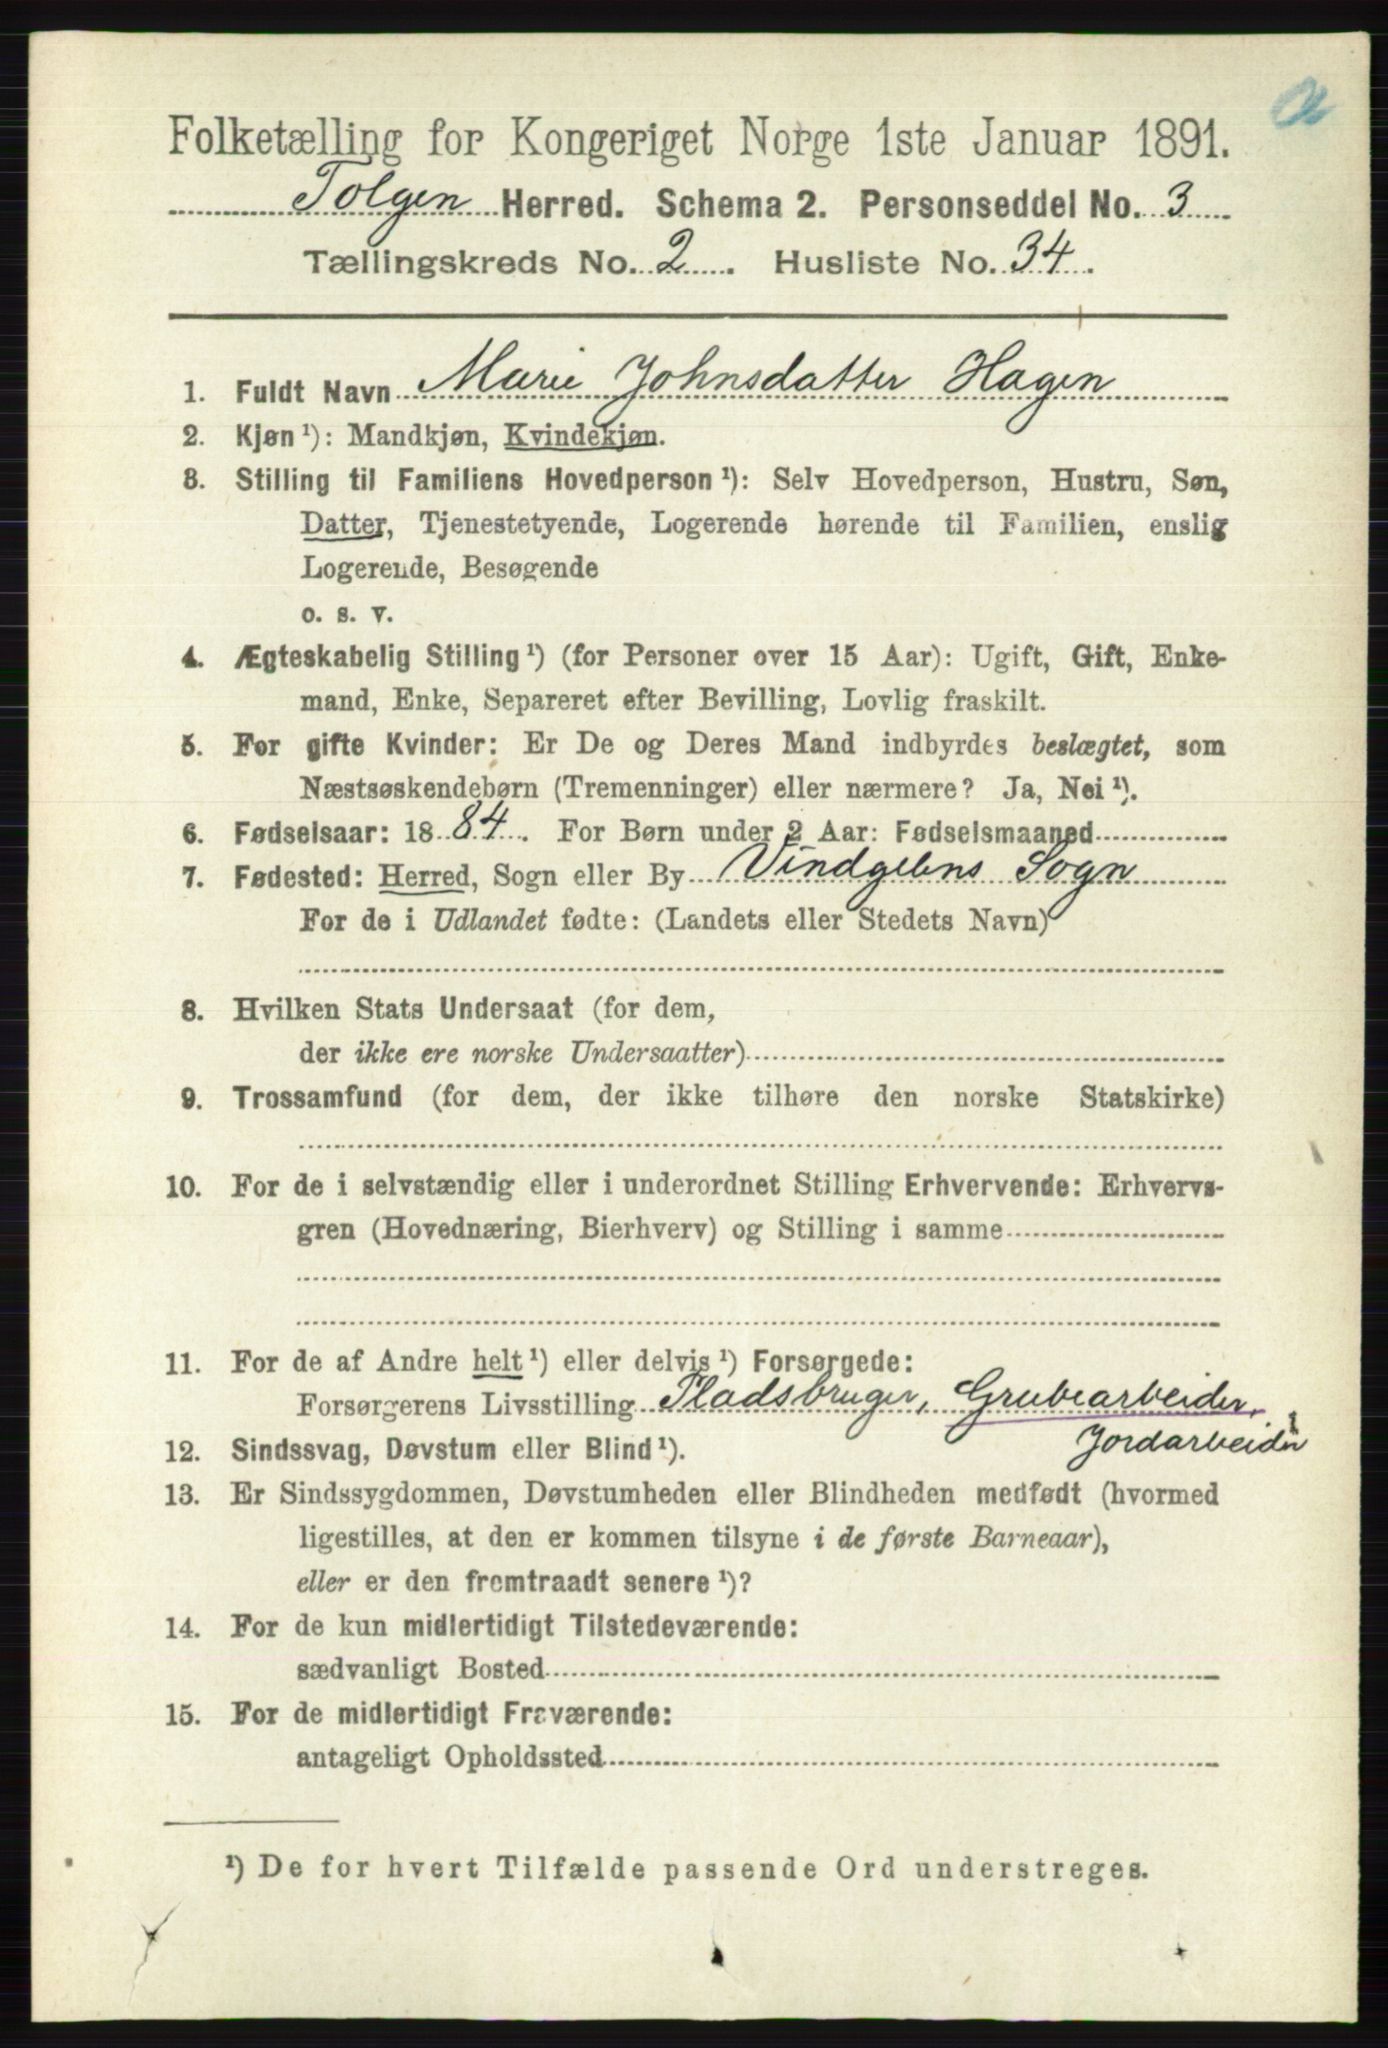 Folketælling for Kongeriget Norge 1ste Januar 1891.
Tolgen Herred. Schema 2. Personseddel No. 3
Tællingskreds No. 2. Husliste No. 34.
1. Fuldt Navn Marie Johnsdatter Hagen
2. Kjøn ¹): Mandkjøn, Kvindekjøn.
3. Stilling til Familiens Hovedperson ¹): Selv Hovedperson, Hustru, Søn,
Datter, Tjenestetyende, Logerende hørende til Familien, enslig
Logerende, Besøgende
o. s. v.
4. Ægteskabelig Stilling ¹) (for Personer over 15 Aar): Ugift, Gift, Enke-
mand, Enke, Separeret efter Bevilling, Lovlig fraskilt.
5. For gifte Kvinder: Er De og Deres Mand indbyrdes beslægtet, som
Næstsøskendebørn (Tremenninger) eller nærmere? Ja, Nei ¹).
6. Fødselsaar: 1884. For Børn under 2 Aar: Fødselsmaaned
7. Fødested: Herred, Sogn eller By Vindgelens Sogn
For de i Udlandet fødte: (Landets eller Stedets Navn)
8. Hvilken Stats Undersaat (for dem,
der ikke ere norske Undersaatter)
9. Trossamfund (for dem, der ikke tilhøre den norske Statskirke)
10. For de i selvstændig eller i underordnet Stilling Erhvervende: Erhvervs-
gren (Hovednæring, Bierhverv) og Stilling i samme
11. For de af Andre helt ¹) eller delvis ¹) Forsørgede:
Forsørgerens Livsstilling Pladsbruger, Grubearbeider,
Jordarbeider
12. Sindssvag, Døvstum eller Blind ¹).
13. Er Sindssygdommen, Døvstumheden eller Blindheden medfødt (hvormed
ligestilles, at den er kommen tilsyne i de første Barneaar),
eller er den fremtraadt senere ¹)?
14. For de kun midlertidigt Tilstedeværende:
sædvanligt Bosted
15. For de midlertidigt Fraværende:
antageligt Opholdssted
¹) De for hvert Tilfælde passende Ord understreges.